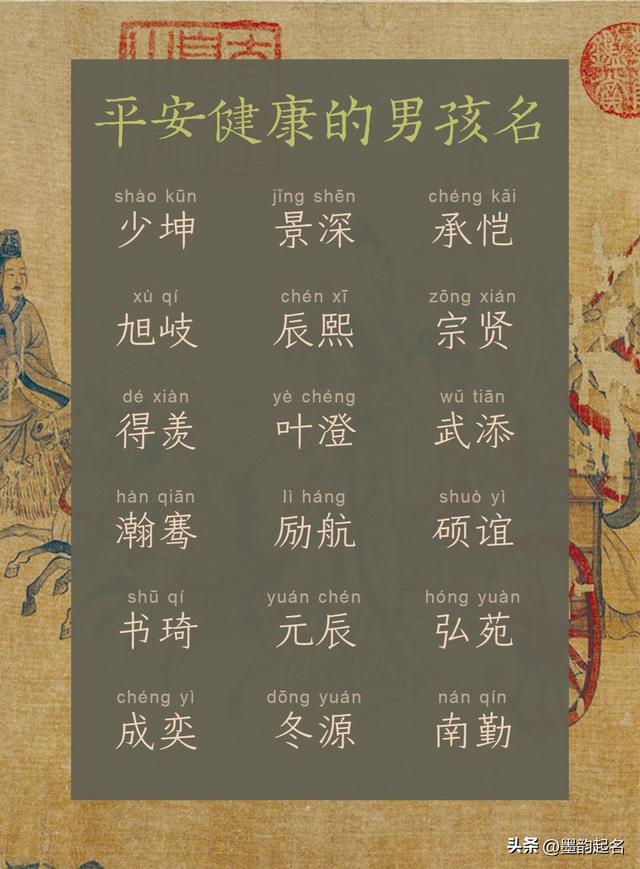 平安健康的男孩名
shào kūn jǐng shēn chéng kǎi
少坤 景深 承恺
xù qí chén xī zōng xián
旭岐 辰熙 宗贤
dé xiàn yè chéng wǔ tiān
得羡 叶澄 武添
hàn qiān lì háng shuò yì
瀚骞 励航 硕谊
shū qí yuán chén hóng yuàn
书琦 元辰 弘苑
chéng yì dōng yuán nán qín
成奕 冬源 南勤
头条 @墨韵起名